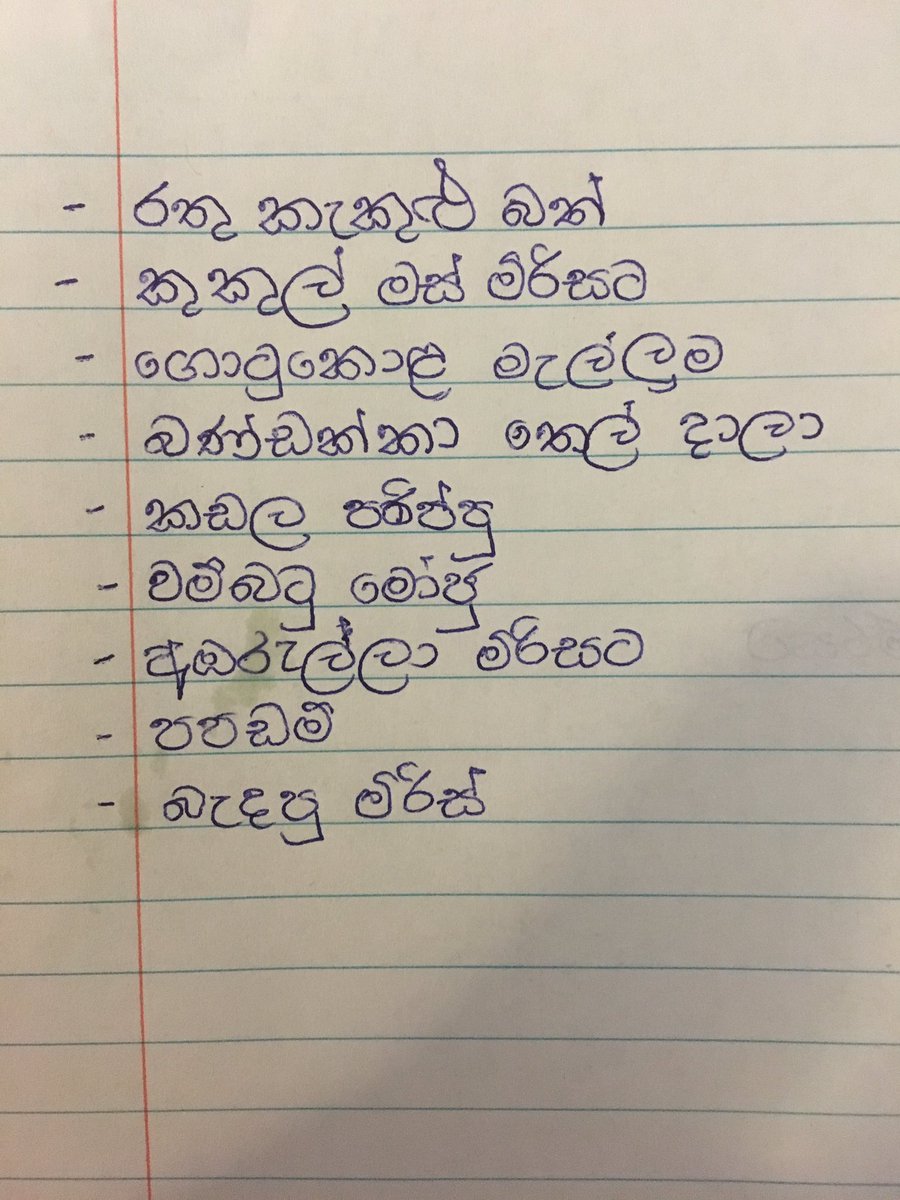 - රතු කැකුළු බත්
- කුකුල් මස් මිරිසට
- ගොටුකොළ මැල්ලුම
- බණ්ඩක්කා තෙල් දාලා
- කඩල පරිප්පු
- වම්බටු මෝජු
- අඹරැල්ලා මිරිසට
- පපඩම්
- බැදපු මිරිස්